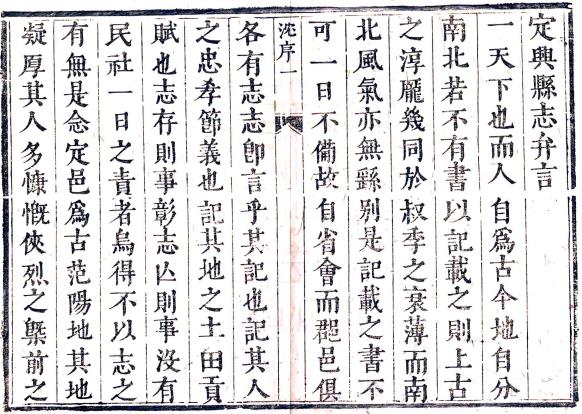 定興縣志弁言
一天下也而人自爲古今地自分
南北若不有書以記載之則上古
之淳龐幾同於叔季之衰薄而南
北風氣亦無繇別是記載之書不
可一日不備故自省會而郡邑俱
沈序一
各有志志卽言乎其記也記其人
之忠孝節義也記其地之土田貢
賦也志存則事彰志亾則事沒有
民社一日之責者烏得不以志之
有無是念定邑爲古范陽地其地
凝厚其人多慷慨俠烈之槩前之